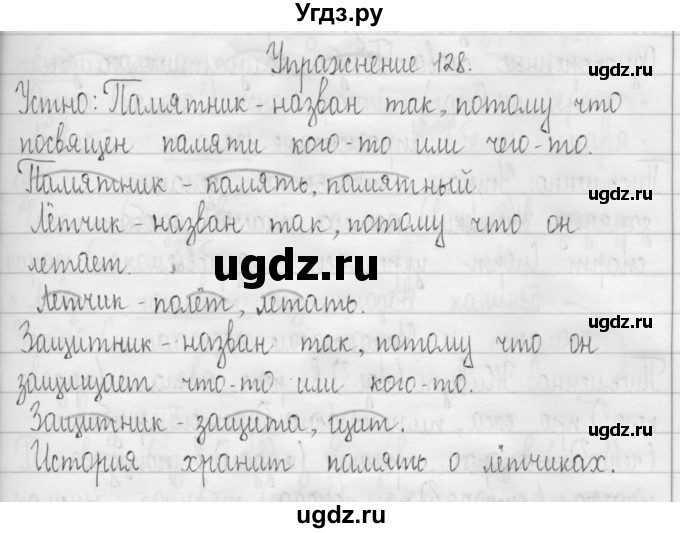 Угдз.ру
Упражнение 128.
ugdz.ru
Устно: Памятник - назван так, потому что
посвящен памяти кого-то или чего-то.
ugdz.ru
Памятник - память, памятный.
Лётчик - назван так, потому что он
ugdz.ru
летает.
ugdz.ru
Лётчик - полёт, летать.
ugdz.ru
Защитник - назван так, потому что он
защищает что-то или кого-то.
ugdz.ru
Защитник - защита, щит.
История хранит память о лётчиках.
ugdz.ru
ugdz.ru